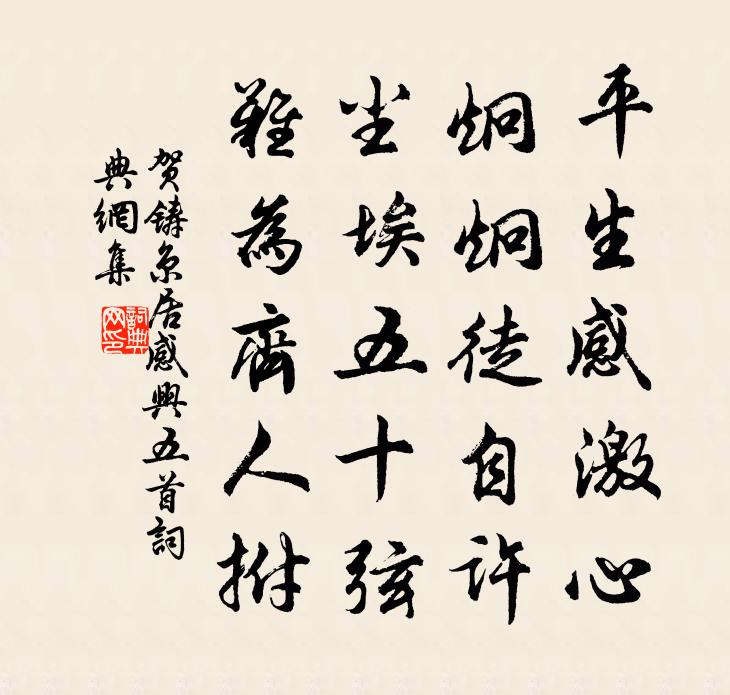 平生感激心
炯炯徒自許
尘埃五十弦
難為齊人拊
賀鑄京居感興五首詞
典網集
詞典
网印